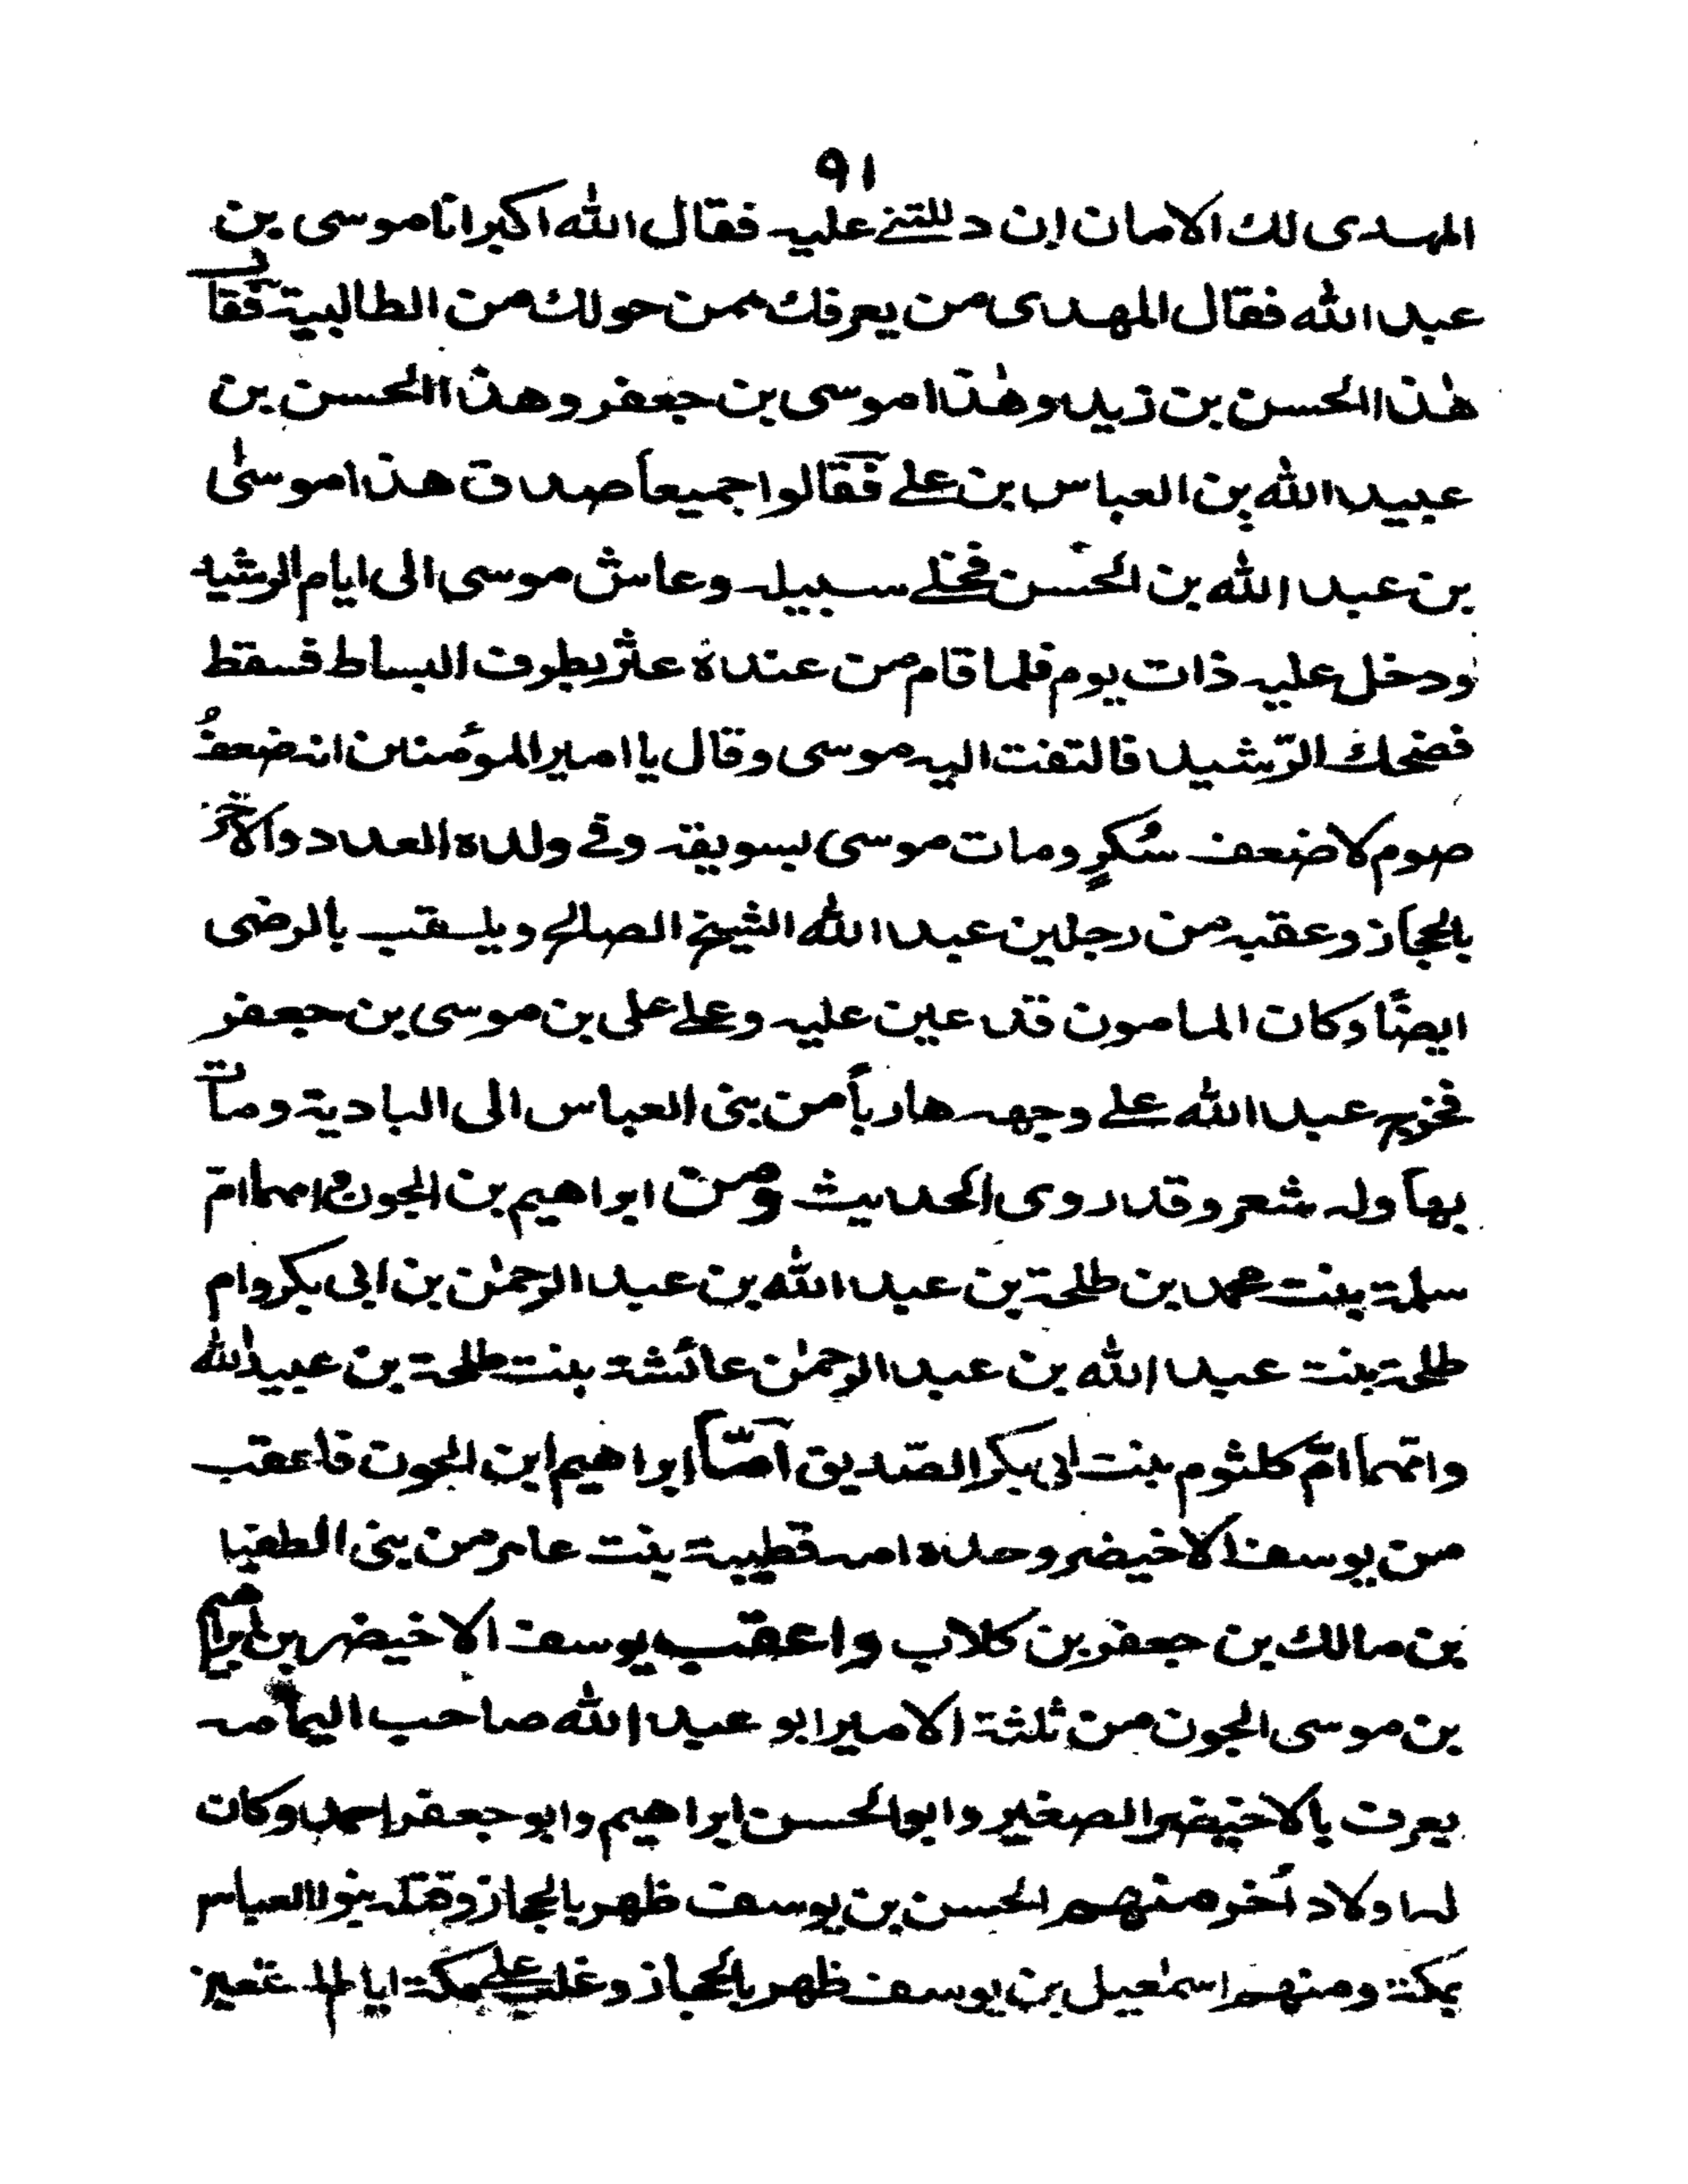 ٩١
المهدى لك الامان ان دللتنے عليه فقال الله اكبر انا موسى بن
عبد الله فقال المهدى من يعرفك ممن حولك من الطالبية فقال
هٰذا الحسن بن زيد وهٰذا موسى بن جعفر وهذا الحسن بن
عبيد الله بن العباس بن علے فقالوا جميعاً صدق هذا موسىٰ
بن عبد الله بن الحسن فخلے سبيله وعاش موسى الى ايام الرشيد
ودخل عليه ذات يوم فلما قام من عنده عثر بطرف البساط فسقط
فضحك الرّشيد فالتفت اليه موسى وقال يا امير المؤمنين انه ضعفُ
صوم لا ضعف سُكرٍ ومات موسى بسويقه وفے ولده العدد والاخر
بالحجاز وعقبه من رجلين عبد الله الشيخ الصالح ويلقب بالرضى
ايضًا وكان المامون قد عين عليه وعلے على بن موسى بن جعفر
فخرج عبد الله علے وجهه هارباً من بنى العباس الى البادية ومات
بها وله شعر وقد روى الحديث ومن ابراهيم بن الجون امهما امّ
سلمة بنت محمد بن طلحة بن عبد الله بن عبد الرحمٰن بن ابى بكر وام
طلحة بنت عبد الله بن عبد الرحمٰن عائشة بنت طلحة بن عبيد الله
وامّهما امّ كلثوم بنت ابى بكر الصّديق امّا ابراهيم ابن الجون فاعقب
من يوسف الاخيضر وحده امه قطيبة بنت عامر من بنى الطفيل
بن مالك بن جعفر بن كلاب واعقب يوسف الاخيضر بن ابراهيم
بن موسى الجون من ثلثة الامير ابو عبد الله صاحب اليمامه
يعرف بالاخيضر الصغير وابو الحسن ابراهيم وابو جعفر احمد وكان
له اولاد اُخر منهم الحسن بن يوسف ظهر بالحجاز وقتله بنو العباس
بمكة ومنهم اسمٰعيل بن يوسف ظهر بالحجاز وغلب علے مكة ايام